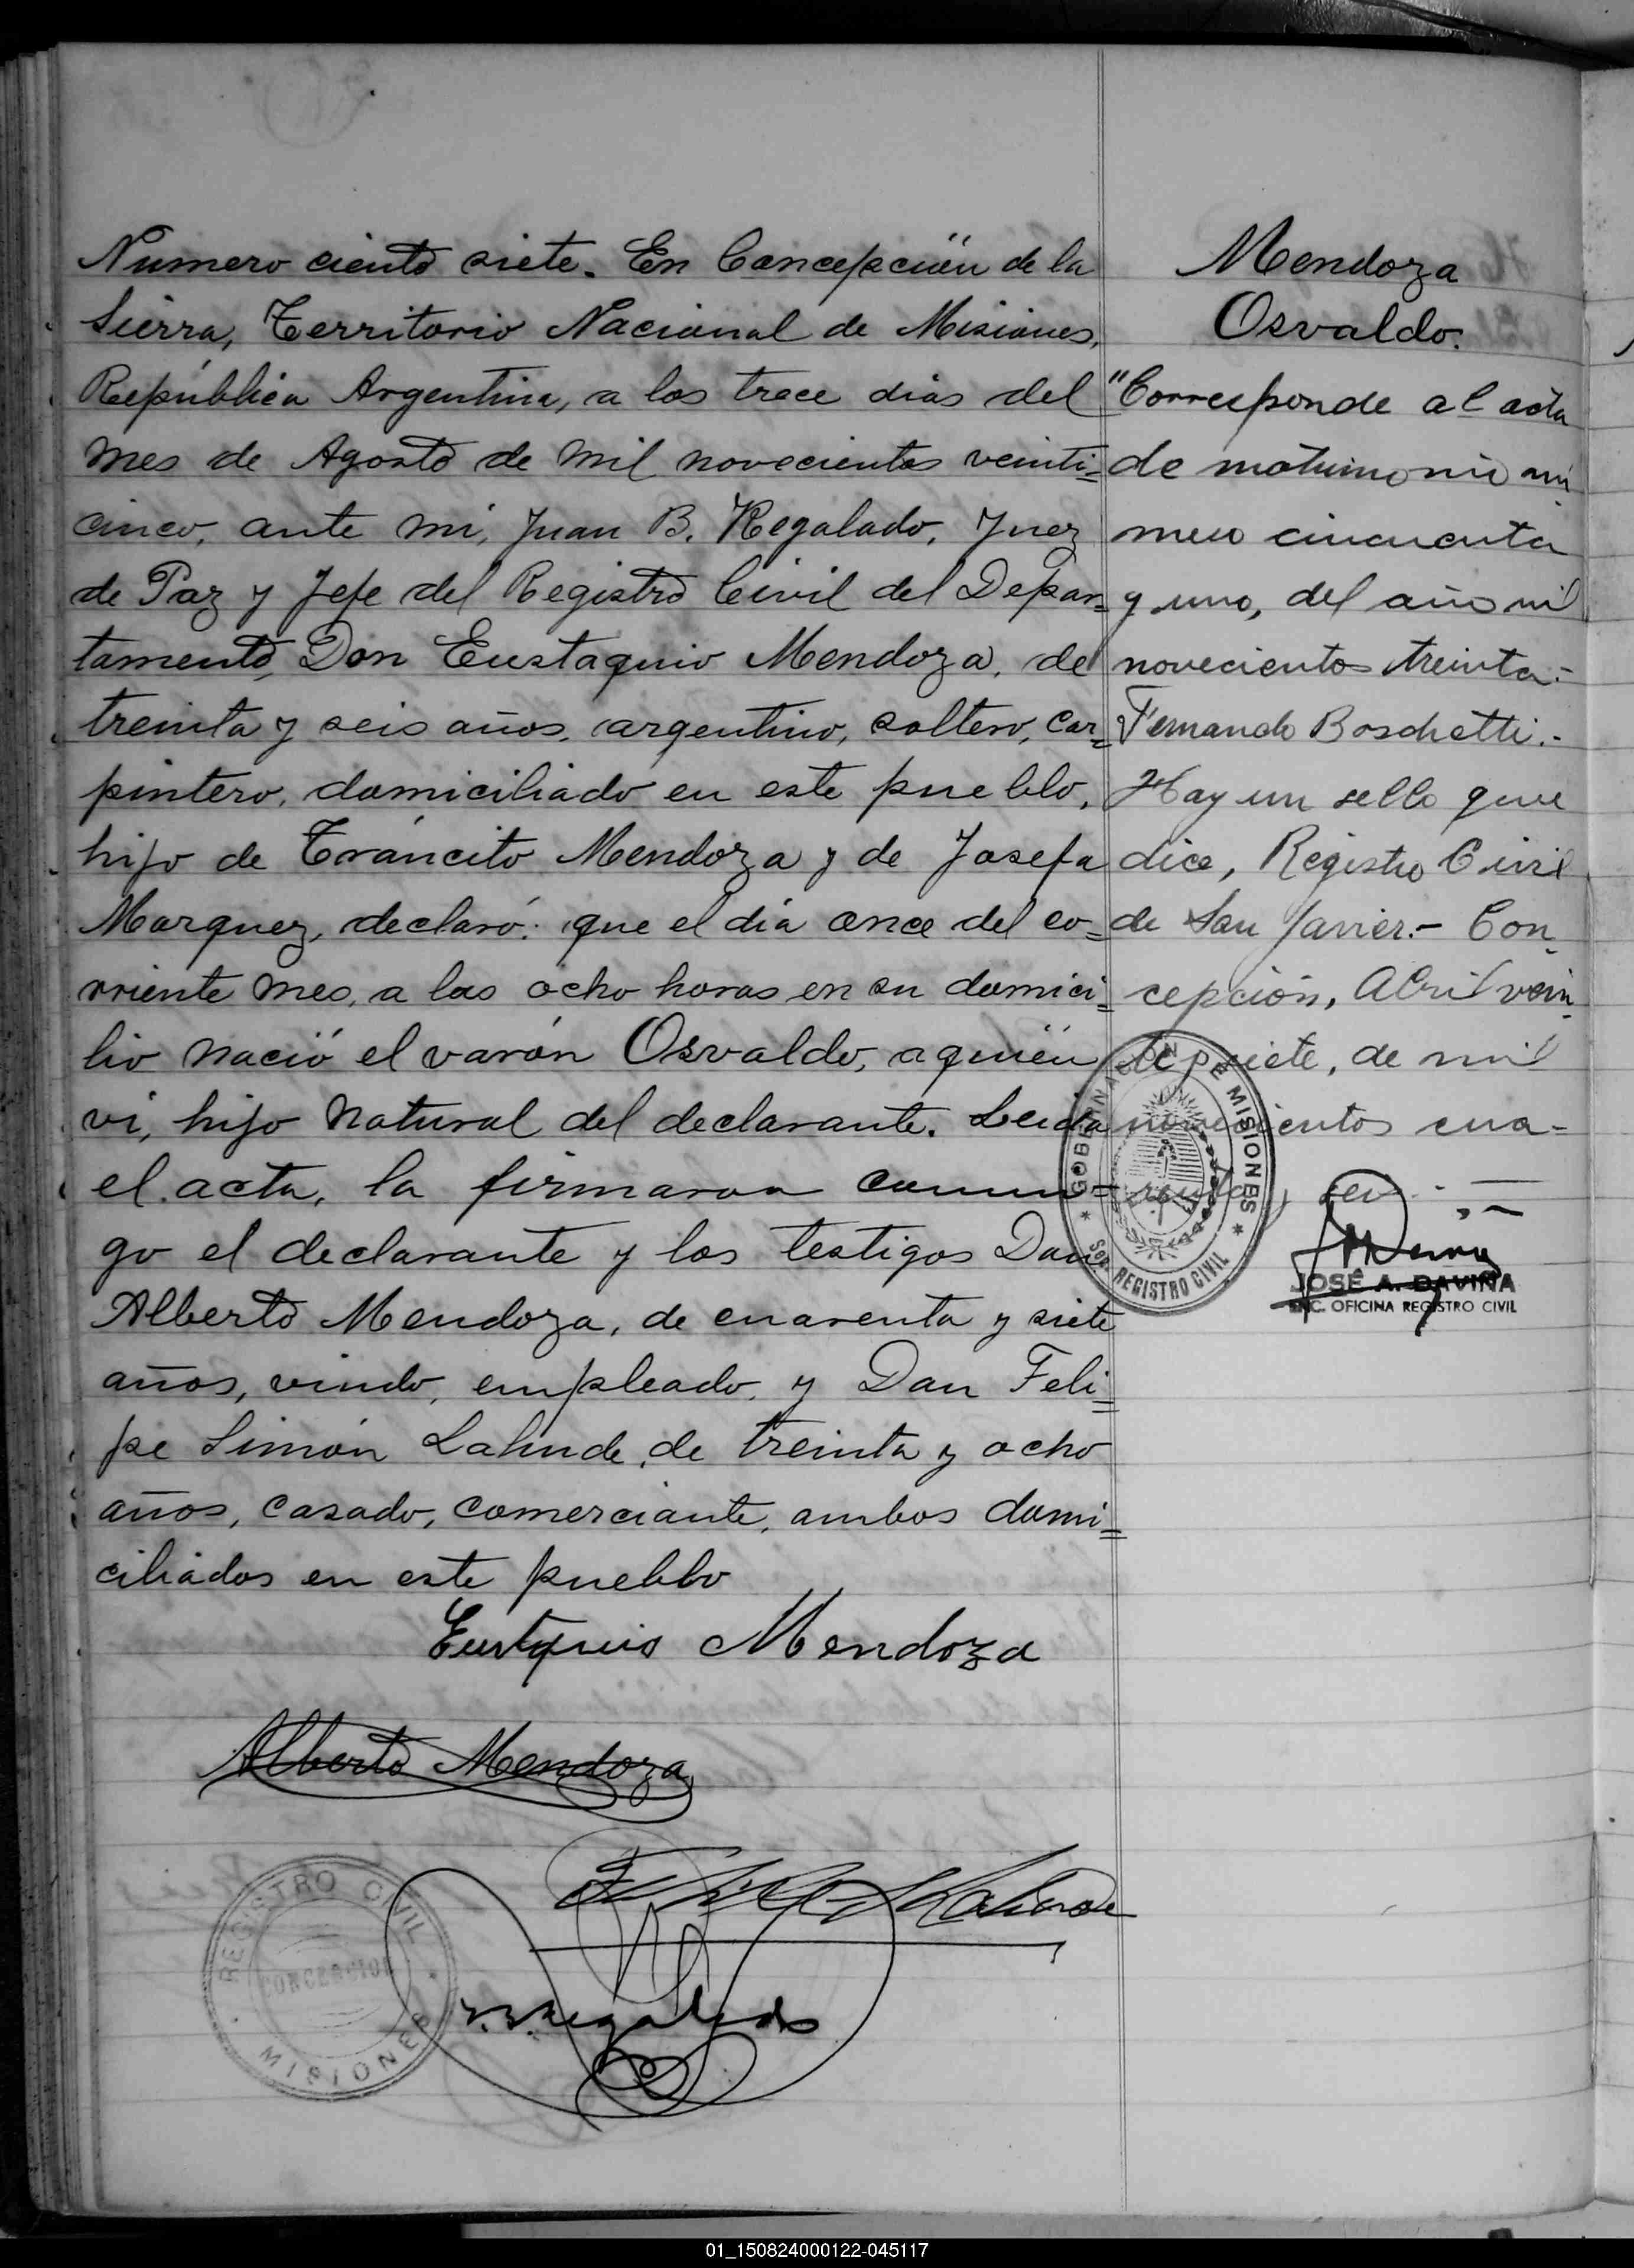 Numero ciento siete. En Concepción de la
Sierra, Territorio Nacional de Misiones,
República Argentina, a los trece dias del
mes de Agosto de mil novecientos veinti=
cinco, ante mi, Juan B. Regalado, Juez
de Paz y Jefe del Registro Civil del Depar=
tamento, Don Eustaquio Mendoza, de
treinta y seis años, argentino, soltero, car=
pintero, domiciliado en este pueblo,
hijo de Tráncito Mendoza y de Josefa
Marquez, declaró: que el día once del co=
rriente mes, a las ocho horas en su domici=
lio nació el varón Osvaldo, a quién
vi, hijo natural del declarante. Leida
el acta, la firmaron conmi=
go el declarante y los testigos Don
Alberto Mendoza, de cuarenta y siete
años, viudo, empleado, y Don Feli=
pe Simón Lahude, de treinta y ocho
años, casado, comerciante, ambos domi=
ciliados en este pueblo
Eustquio Mendoza
Alberto Mendoza
Felipe S Lahude
J.B. Regalado
REGISTRO CIVIL
CONCEPCION
MISIONES
Mendoza
Osvaldo.
"Corresponde al acta
de matrimonio nú
mero cincuenta
y uno, del año mil
novecientos treinta.-
Fernando Boschetti.-
Hay un sello que
dice, Registro Civil
de San Javier.- Con
cepción, Abril vein
te y siete, de mil
novecientos cua-
renta y seis.-
GOBERNACION DE MISIONES
REGISTRO CIVIL
JOSÉ A. DAVIÑA
ENC. OFICINA REGISTRO CIVIL
01_150824000122-045117